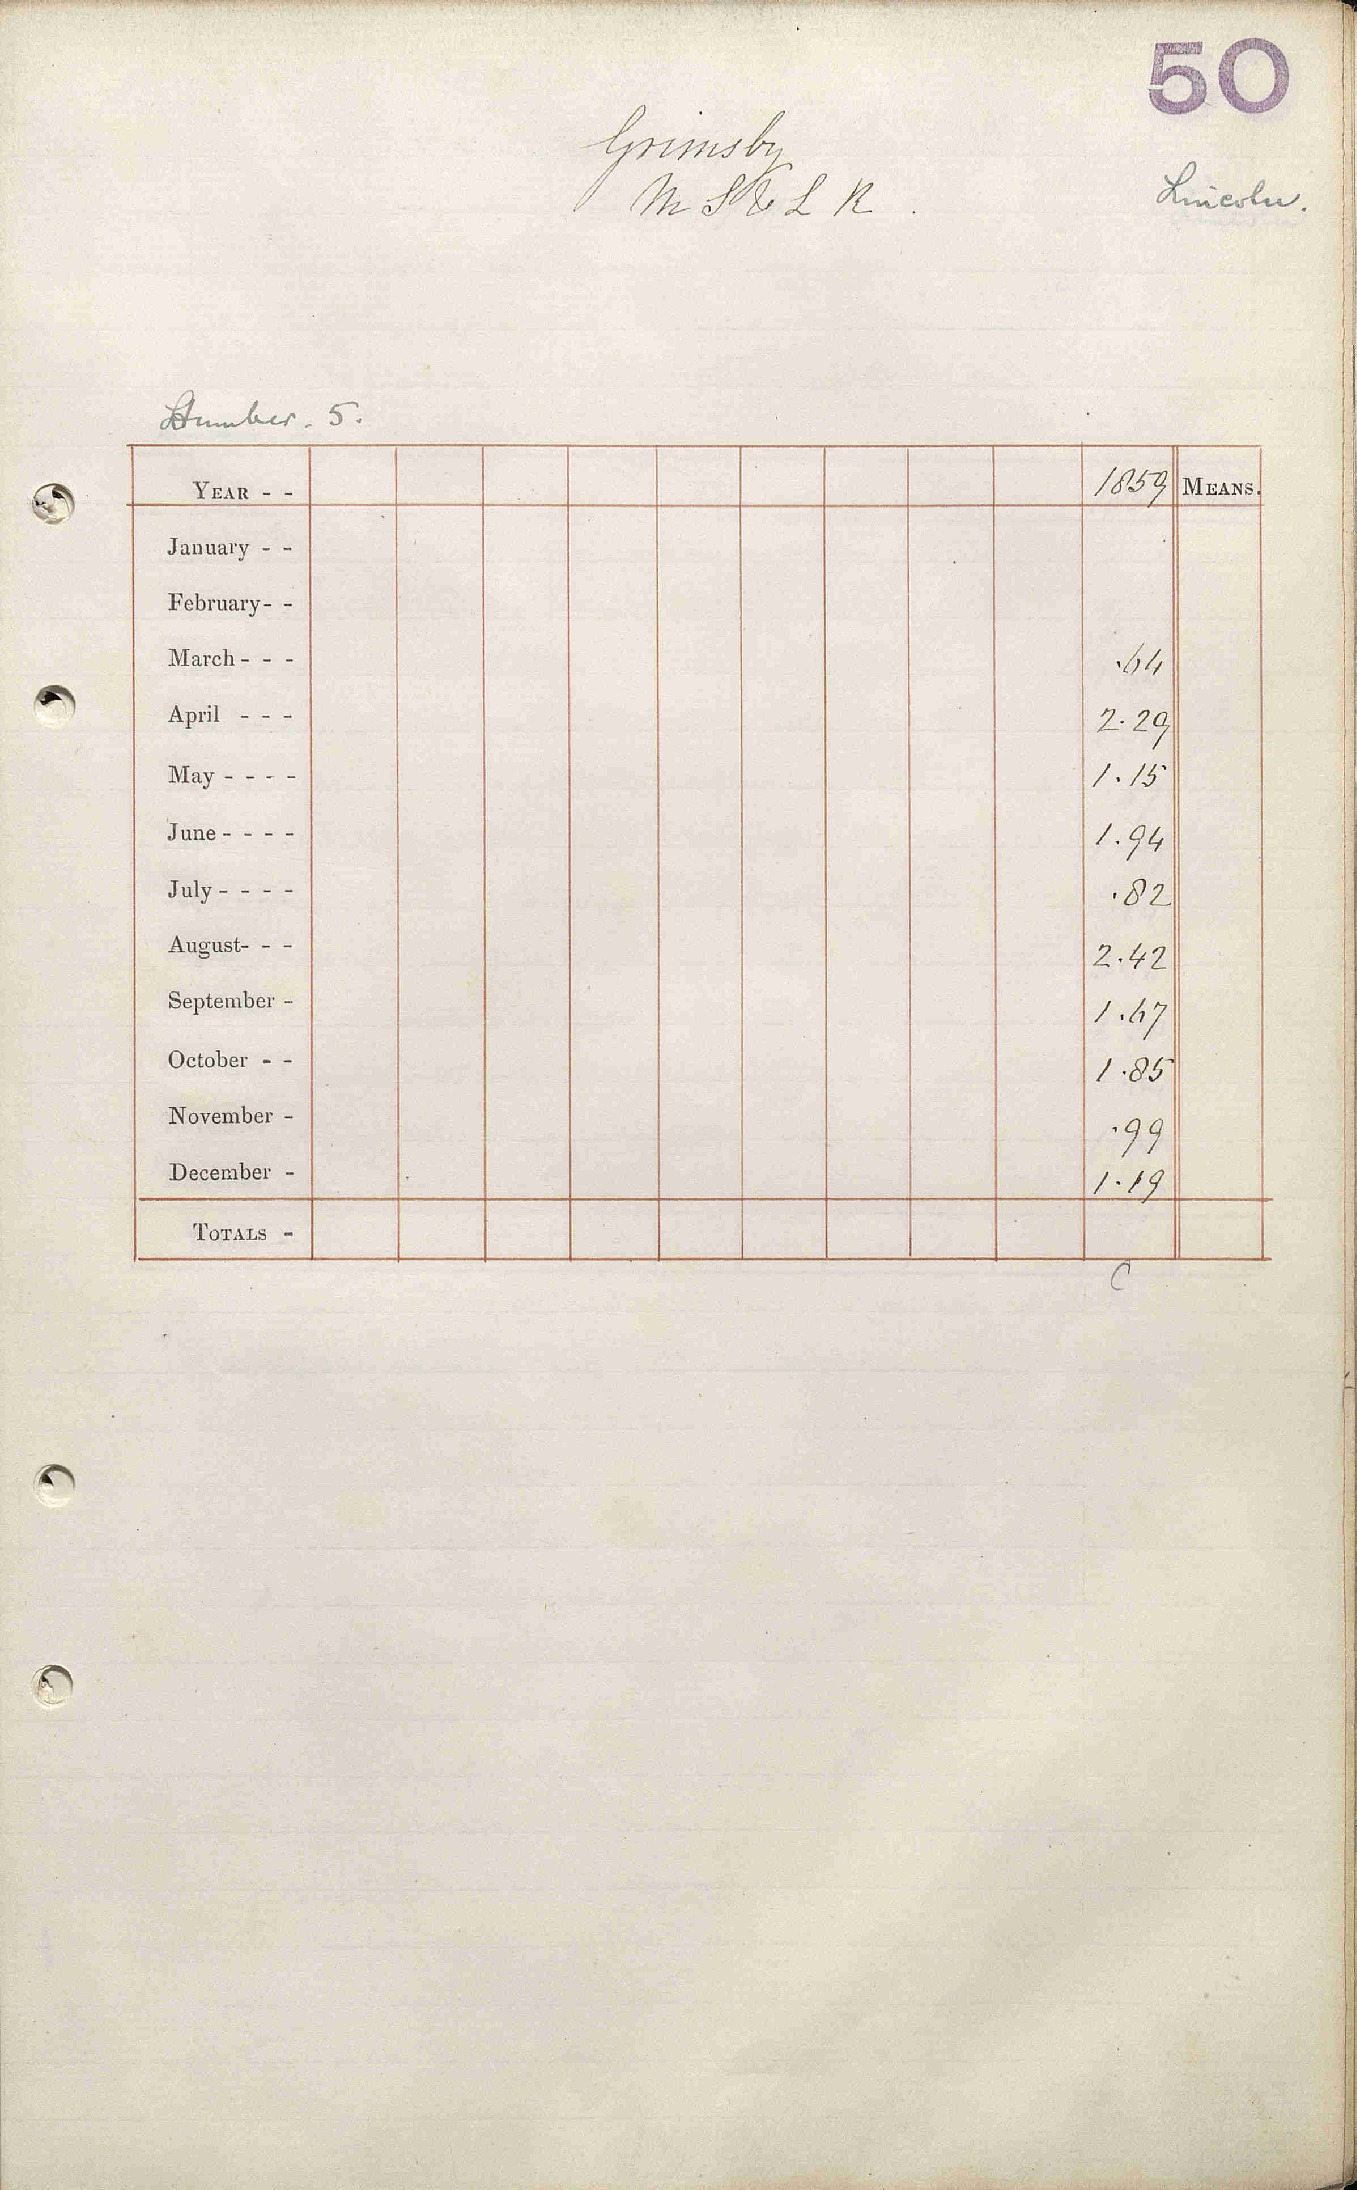 50
Grimsby
M S & L R .
Lincoln.
Humber. 5.
YEAR - - 1859 MEANS.
January - -
February- -
March- - - .64
April - - - 2.29
May - - - - 1.15
June - - - - 1.94
July - - - - .82
August- - - 2.42
September - 1.67
October - - 1.85
November - .99
December - 1.19
TOTALS -
C